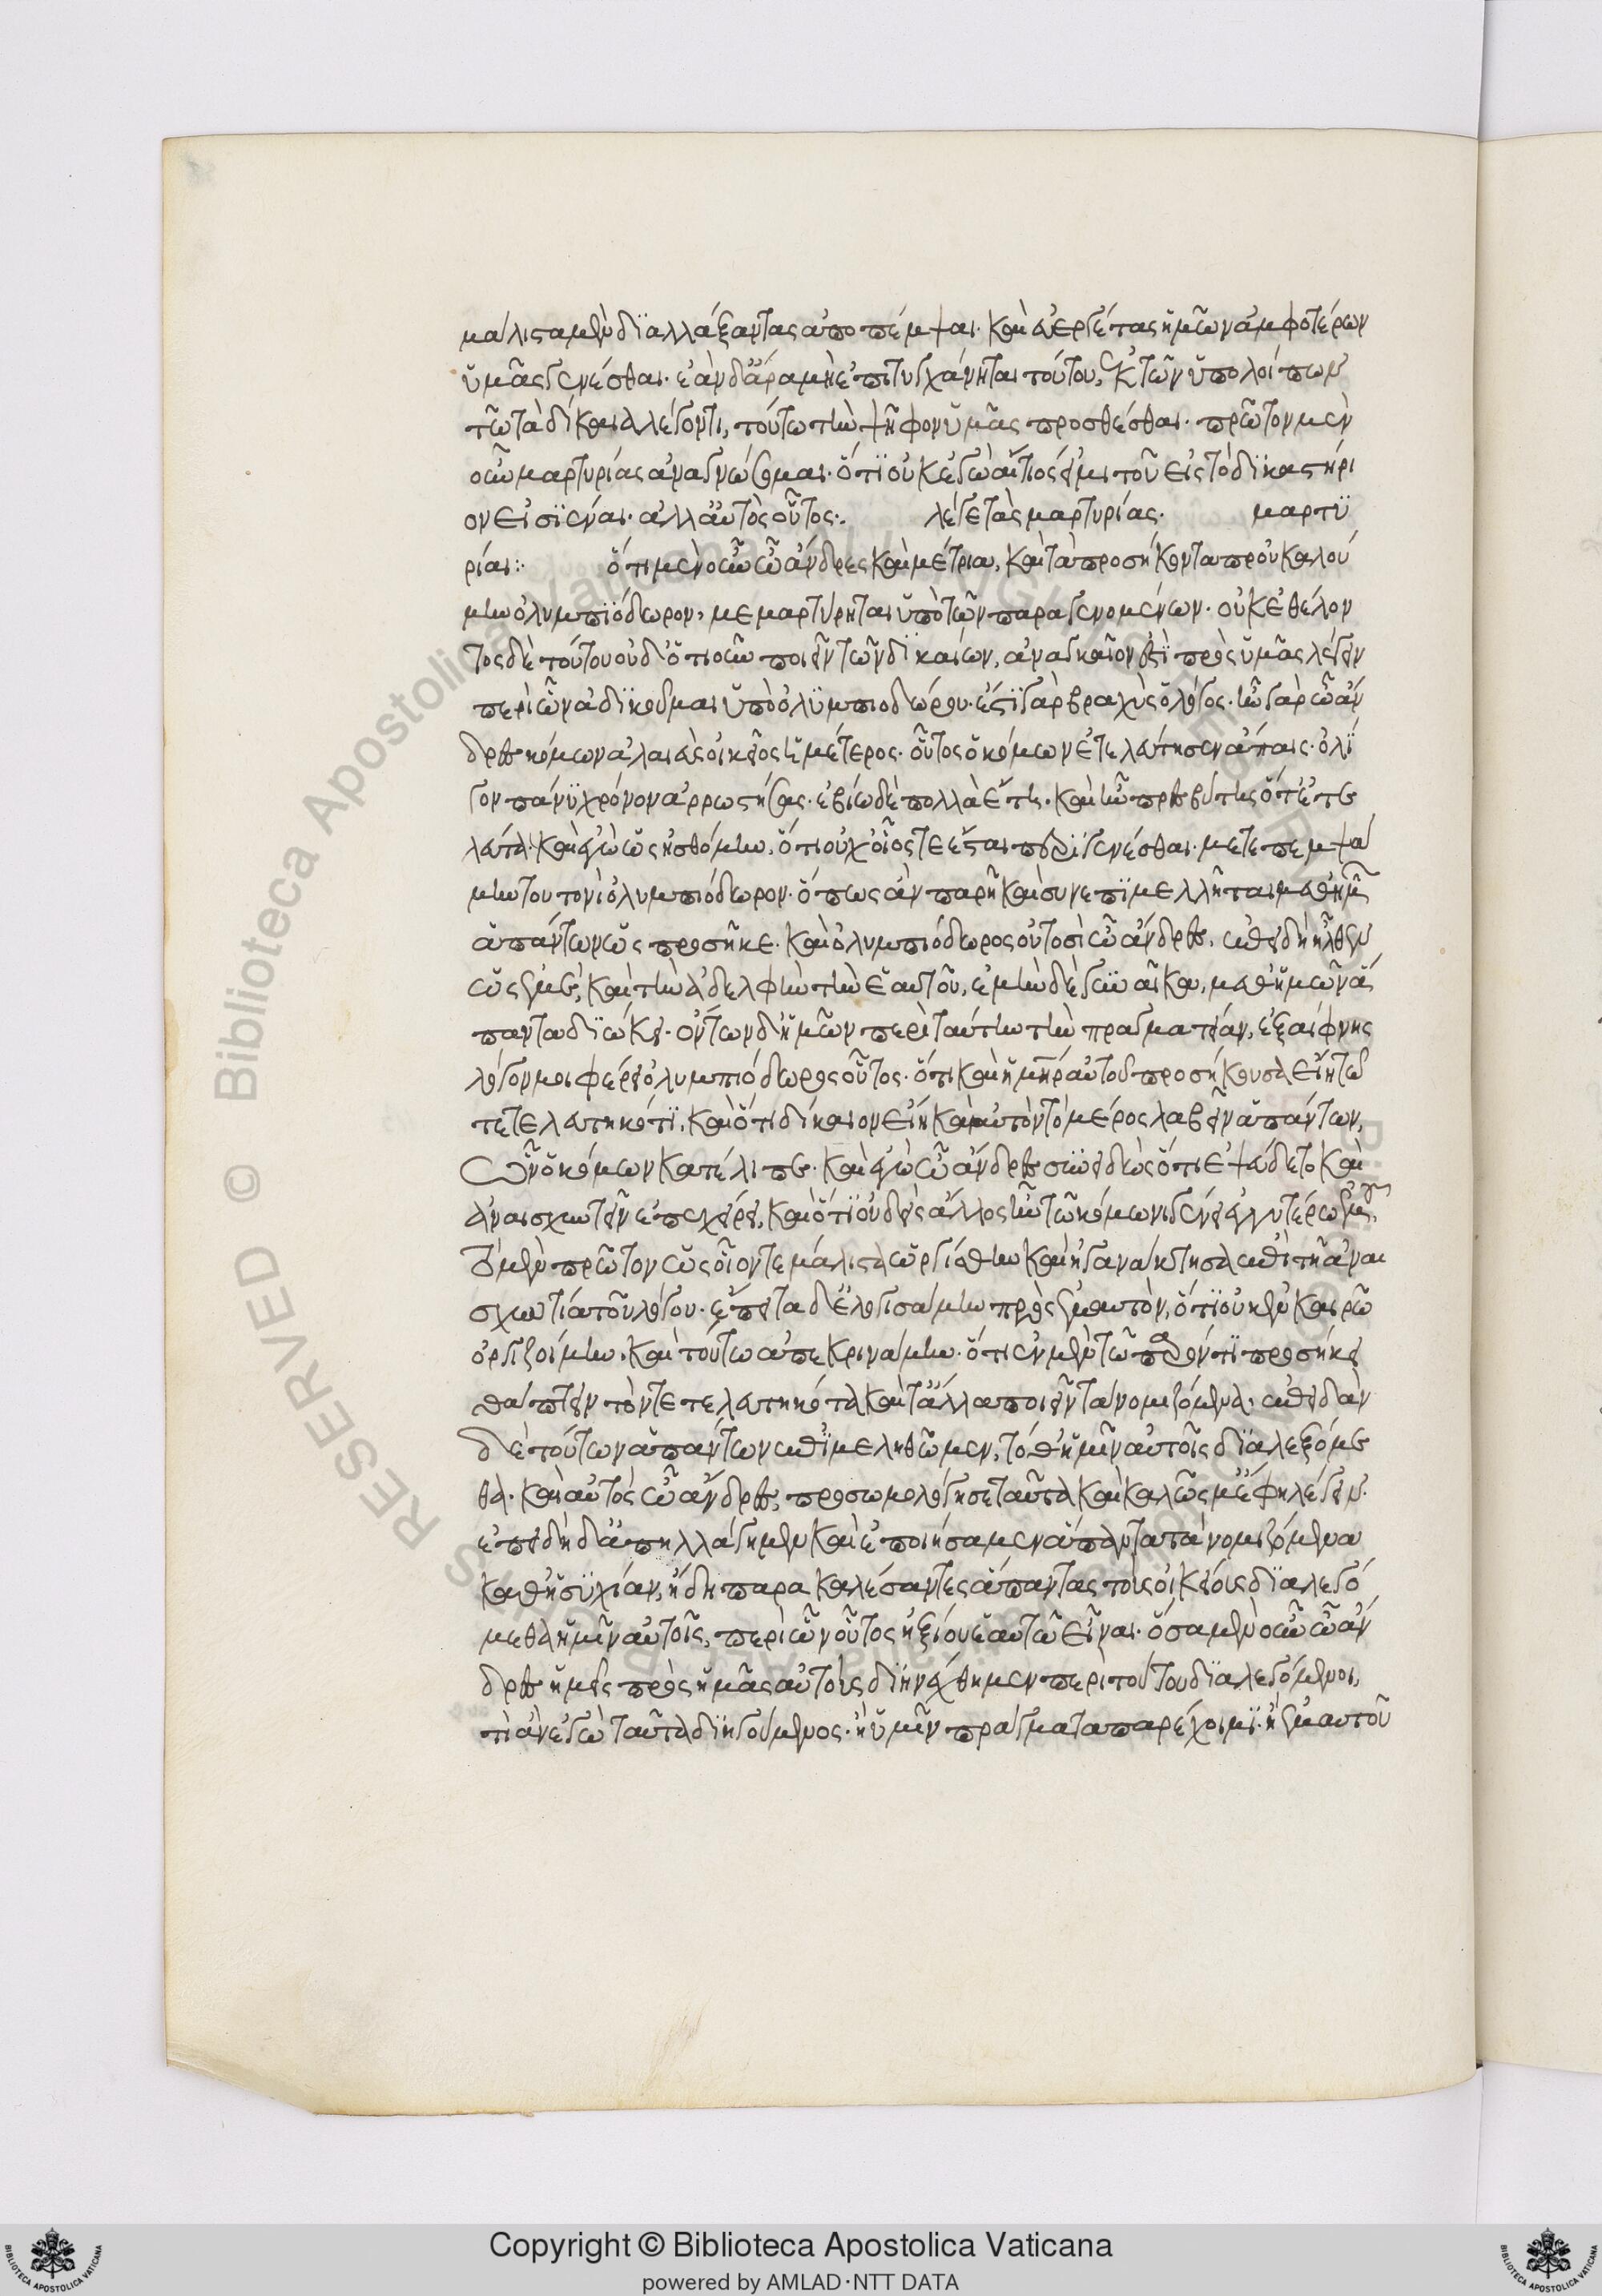 μάλιστα μὲν διαλλάξαντας ἀποπέμψαι· καὶ εὐεργέτας ἡμῶν ἀμφοτέρων
ὑμᾶς γενέσθαι· ἐὰν δ' ἄρα μὴ ἐπιτυγχάνηται τούτου, ἐκ τῶν ὑπολοίπων
τῶ τὰ δίκαια λέγοντι, τούτω τὴν ψῆφον ὑμᾶς προσθέσθαι· πρῶτον μὲν
οὖν μαρτυρίας ἀναγνώσομαι· ὅτι οὐκ ἐγὼ αἴτιός εἰμι τοῦ εἰς τὸ δικαστήρι
ον εἰσϊέναι· ἀλλ' αὐτὸς οὗτος· λέγε τὰς μαρτυρίας· μαρτϋ
ρίαι:· ὅτι μὲν οὖν ὦ ἄνδρες καὶ μέτρια, καὶ τὰ προσήκοντα προὐκαλού
μην ὀλυμπιόδωρον, μεμαρτύρηται ὑπὸ τῶν παραγενομένων· οὐκ ἐθέλον
τος δὲ τούτου οὐδ' ὁτιοῦν ποιεῖν τῶν δικαίων, ἀναγκαῖόν ἐστι πρὸς ὑμᾶς λέγειν
περὶ ὧν ἀδικοῦμαι ὑπὸ ὀλϋμπιοδώρου· ἔστι γὰρ βραχὺς ὁ λόγος· ἦν γὰρ ὦ ἄν
δρες κόμων ἁλαιεὺς οἰκεῖος ἡμέτερος· οὗτος ὁ κόμων ἐτελεύτησεν ἄπαις· ὀλί
γον πάνυ χρόνον ἀρρωστήσας· ἐβίω δὲ πολλὰ ἔτη· καὶ ἦν πρεσβύτης ὅτ' ἐτε
λεύτα· καὶ ἐγὼ ὡς ᾐσθόμην, ὅτι οὐχ οἷός τε ἔσται περιγενέσθαι· μετεπεμψά
μην τουτονὶ ὀλυμπιόδωρον· ὅπως ἂν παρῆ καὶ συνεπιμελῆται μεθ' ἡμῶν
ἁπάντων ὧν προσῆκε· καὶ ὀλυμπιόδωρος οὑτοσὶ ὦ ἄνδρες, ἐπειδὴ ἦλθεν
ὡς ἐμὲ, καὶ τὴν ἀδελφὴν τὴν ἑαυτοῦ, ἐμὴν δὲ γυναῖκα, μεθ' ἡμῶν ἅ
παντα διώκει· ὄντων δ' ἡμῶν περὶ ταύτην τὴν πραγματείαν, ἐξαίφνης
λόγον μοι φέρει ὀλυμπιόδωρος οὗτος· ὅτι καὶ ἡ μηρ αὐτοῦ προσήκουσα εἴη τῶ
τετελευτηκότι, καὶ ὅτι δίκαιον εἴη καὶ αὐτὸν τὸ μέρος λαβεῖν ἁπάντων,
ὧν ὁ κόμων κατέλιπε· καὶ ἐγὼ ὦ ἄνδρες συνειδὼς ὅτι ἐψεύδετο καὶ
ἀναισχυντεῖν ἐπεχείρει, καὶ ὅτι οὐδεὶς ἄλλος ἦν τῶ κόμωνι γένει ἐγγυτέρω ἐμοῦ,
τὸ μὲν πρῶτον ὡς οἷόν τε μάλιστα ὠργίσθην καὶ ἠγανάκτησα ἐπὶ τῆ ἀναι
σχυντία τοῦ λόγου· ἔπειτα δὲ ἐλογισάμην πρὸς ἐμαυτὸν, ὅτι οὐκ ἐν καιρῶ
ὀργιζοίμην· καὶ τούτω ἀπεκρινάμην· ὅτι ἐν μὲν τῶ παρόντι προσήκει
θάπτειν τὸν τετελευτηκότα καὶ τἄλλα ποιεῖν τὰ νομιζόμενα· ἐπειδὰν
δὲ τούτων ἁπάντων ἐπιμεληθῶμεν, τόθ' ἡμῖν αὐτοῖς διαλεξόμε
θα· καὶ αὐτὸς ὦ ἄνδρες, προσωμολόγησε ταῦτα καὶ καλῶς με ἔφη λέγειν·
ἐπειδὴ δ' ἀπηλλάγημεν καὶ ἐποιήσαμεν ἅπαντα τὰ νομιζόμενα
καθ' ἡσυχίαν, ἤδη παρακαλέσαντες ἅπαντας τοὺς οἰκείους διαλεγό
μεθα ἡμῖν αὐτοῖς, περὶ ὧν οὗτος ἠξίου ἑαυτῶ εἶναι· ὅσα μὲν οὖν ὦ ἄν
δρες ἡμεῖς πρὸς ἡμᾶς αὐτοὺς διηνέχθημεν περὶ τούτου διαλεγόμενοι,
τί ἂν ἐγὼ ταῦτα διηγούμενος· ἢ ὑμῖν πράγματα παρέχοιμι· ἢ ἐμαυτοῦ
Copyright © Biblioteca Apostolica Vaticana
powered by AMLAD·NTT DATA